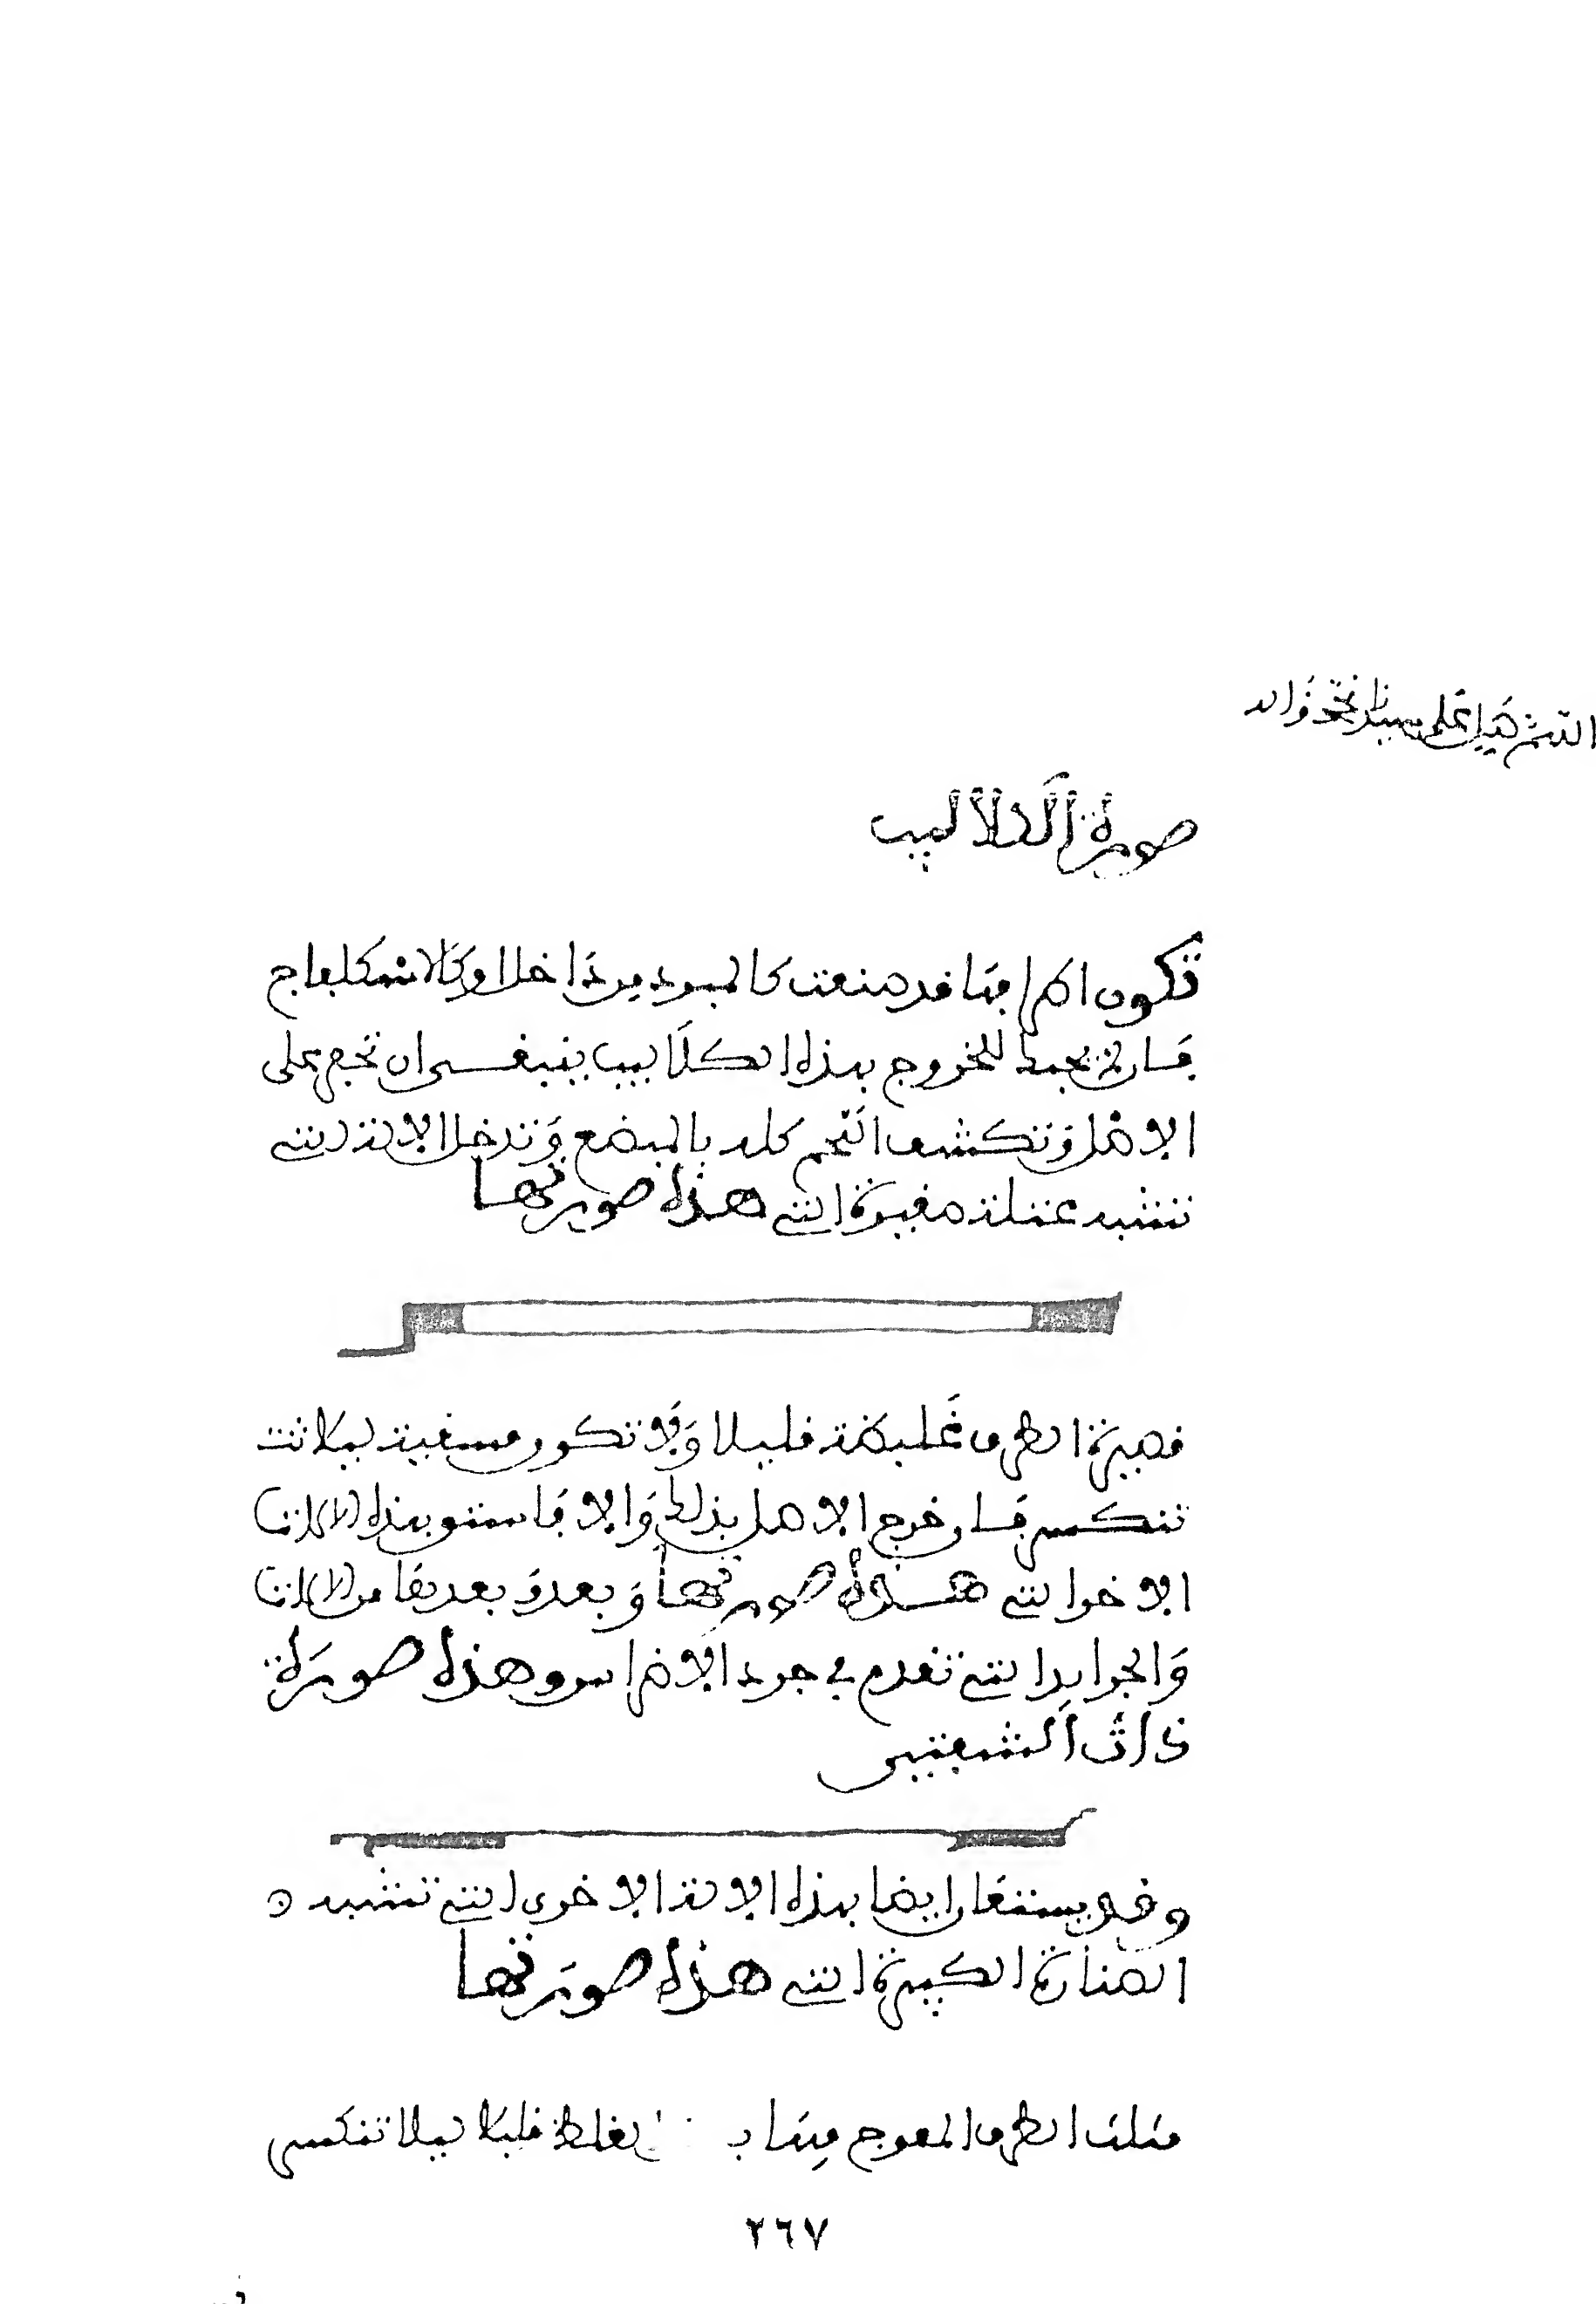 اللهم صل على سيدنا محمد وءاله
صورة الكلاليب
تكون اطرافها قد صنعت كالمبرد من داخل او كالاسكلفاج
فان لم يجبك للخروج بهذه الكلاليب ينبغي ان تحفر على
الاصل وتكشف اللحم كله بالمبضع وتدخل الالة التي
تشبه عتلة صغيرة التي هذه صورتها
قصيرة الطرف غليظة قليلا ولا تكون مسقية ليلا تت
تنكسر فان خرج الاصل بذلك والا فاستعن بهذه الالات
الاخر التي هذه صورتها وبعد بعدها من الالات
والجرايد التي تقدم في جرد الاضراس وهذه صورة
ذات الشعبتين
وقد يستعان ايضا بهذه الالة الاخرى التي تشبه
الصنارة الكبيرة التي هذه صورتها
مثلث الطرف المعوج فيها بعض الغلظ قليلا ليلا تنكسر
٢٦٧